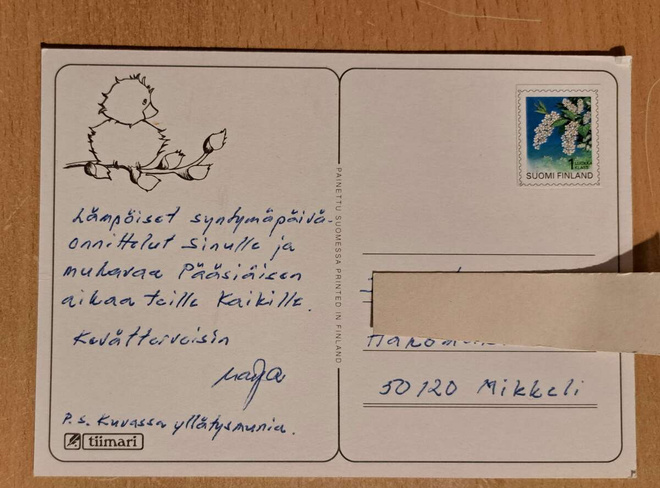 Lämpöiset syntymäpäivä-
onnittelut Sinulle ja
mukavaa Pääsiäisen
aikaa teille Kaikille.
Kevätterveisin
Marja
P.S. Kuvassa yllätysmunia.
tiimari
PAINETTU SUOMESSA PRINTED IN FINLAND
1 LUOKKA
KLASS
SUOMI FINLAND
50120 Mikkeli